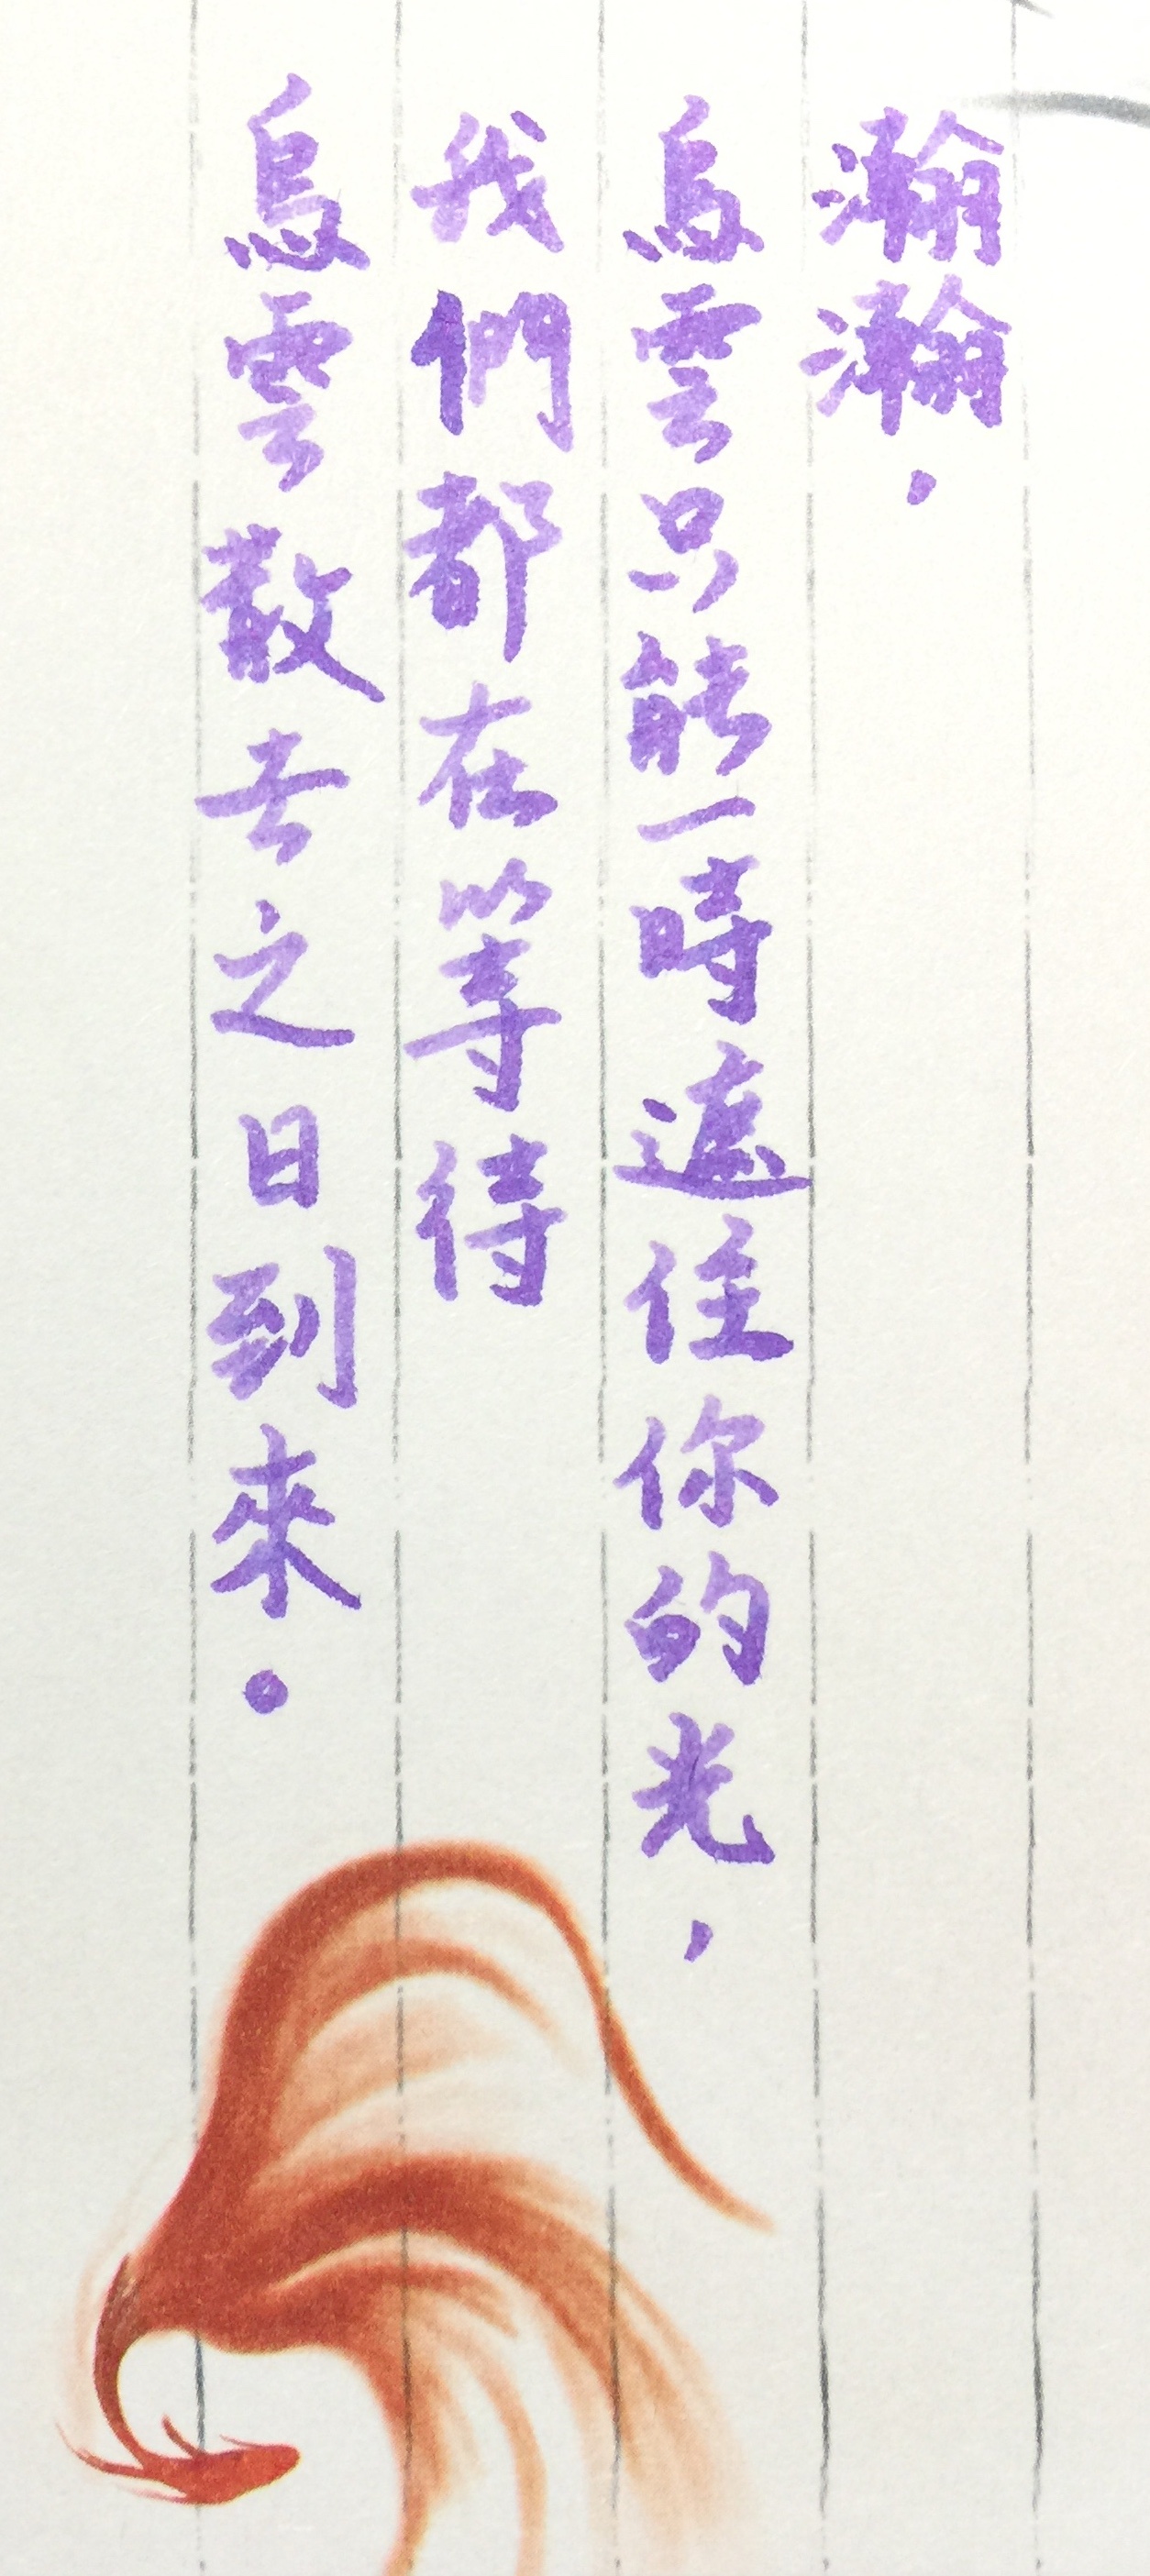 瀚瀚，
烏雲只能一時遮住你的光，
我們都在等待
烏雲散去之日到來。